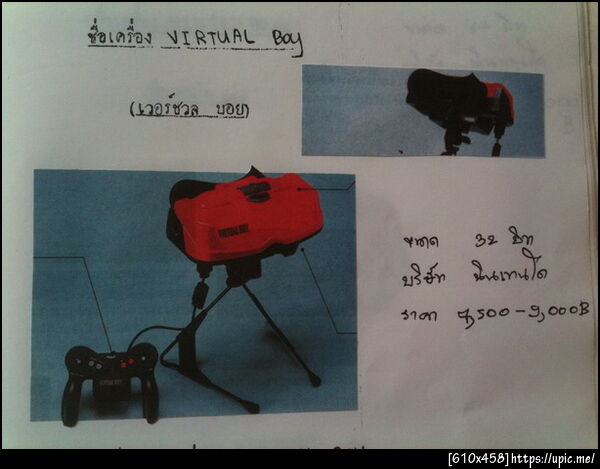 ชื่อเครื่อง VIRTUAL Boy
(เวอร์ชวล บอย)
VIRTUAL BOY
ขนาด 32 บิท
บริษัท นินเทนโด
ราคา 7,500-9,000B
[610x458]https://upic.me/